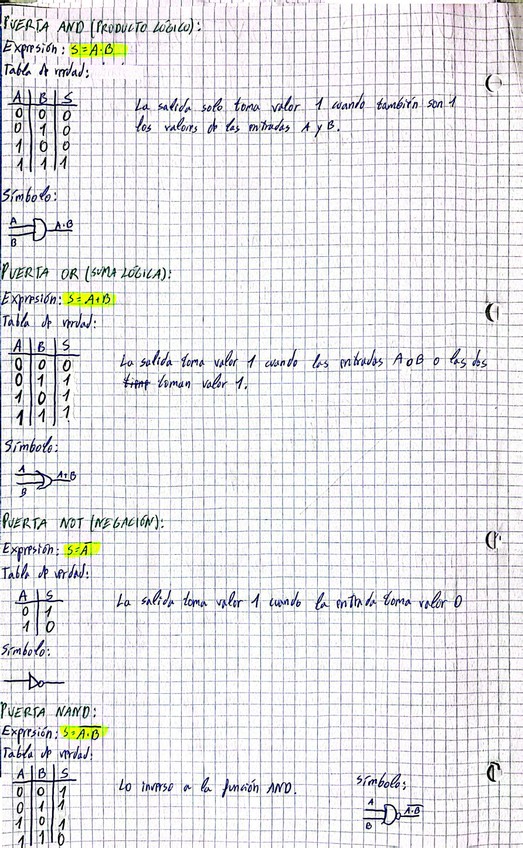 PUERTA AND (PRODUCTO LÓGICO):
Expresión: S=A·B
Tabla de verdad:
A B S
0 0 0
0 1 0
1 0 0
1 1 1
La salida solo toma valor 1 cuando también son 1
los valores de las entradas A y B.
Símbolo:
A
B
A·B
PUERTA OR (SUMA LÓGICA):
Expresión: S=A+B
Tabla de verdad:
A B S
0 0 0
0 1 1
1 0 1
1 1 1
La salida toma valor 1 cuando las entradas A o B o las dos
tiene toman valor 1.
Símbolo:
A
B
A+B
PUERTA NOT (NEGACIÓN):
Expresión: S=A̅
Tabla de verdad:
A S
0 1
1 0
La salida toma valor 1 cuando la entrada toma valor 0
Símbolo:
PUERTA NAND:
Expresión: S=A̅·̅B̅
Tabla de verdad:
A B S
0 0 1
0 1 1
1 0 1
1 1 0
Lo inverso a la función AND.
Símbolo:
A
B
A̅·̅B̅